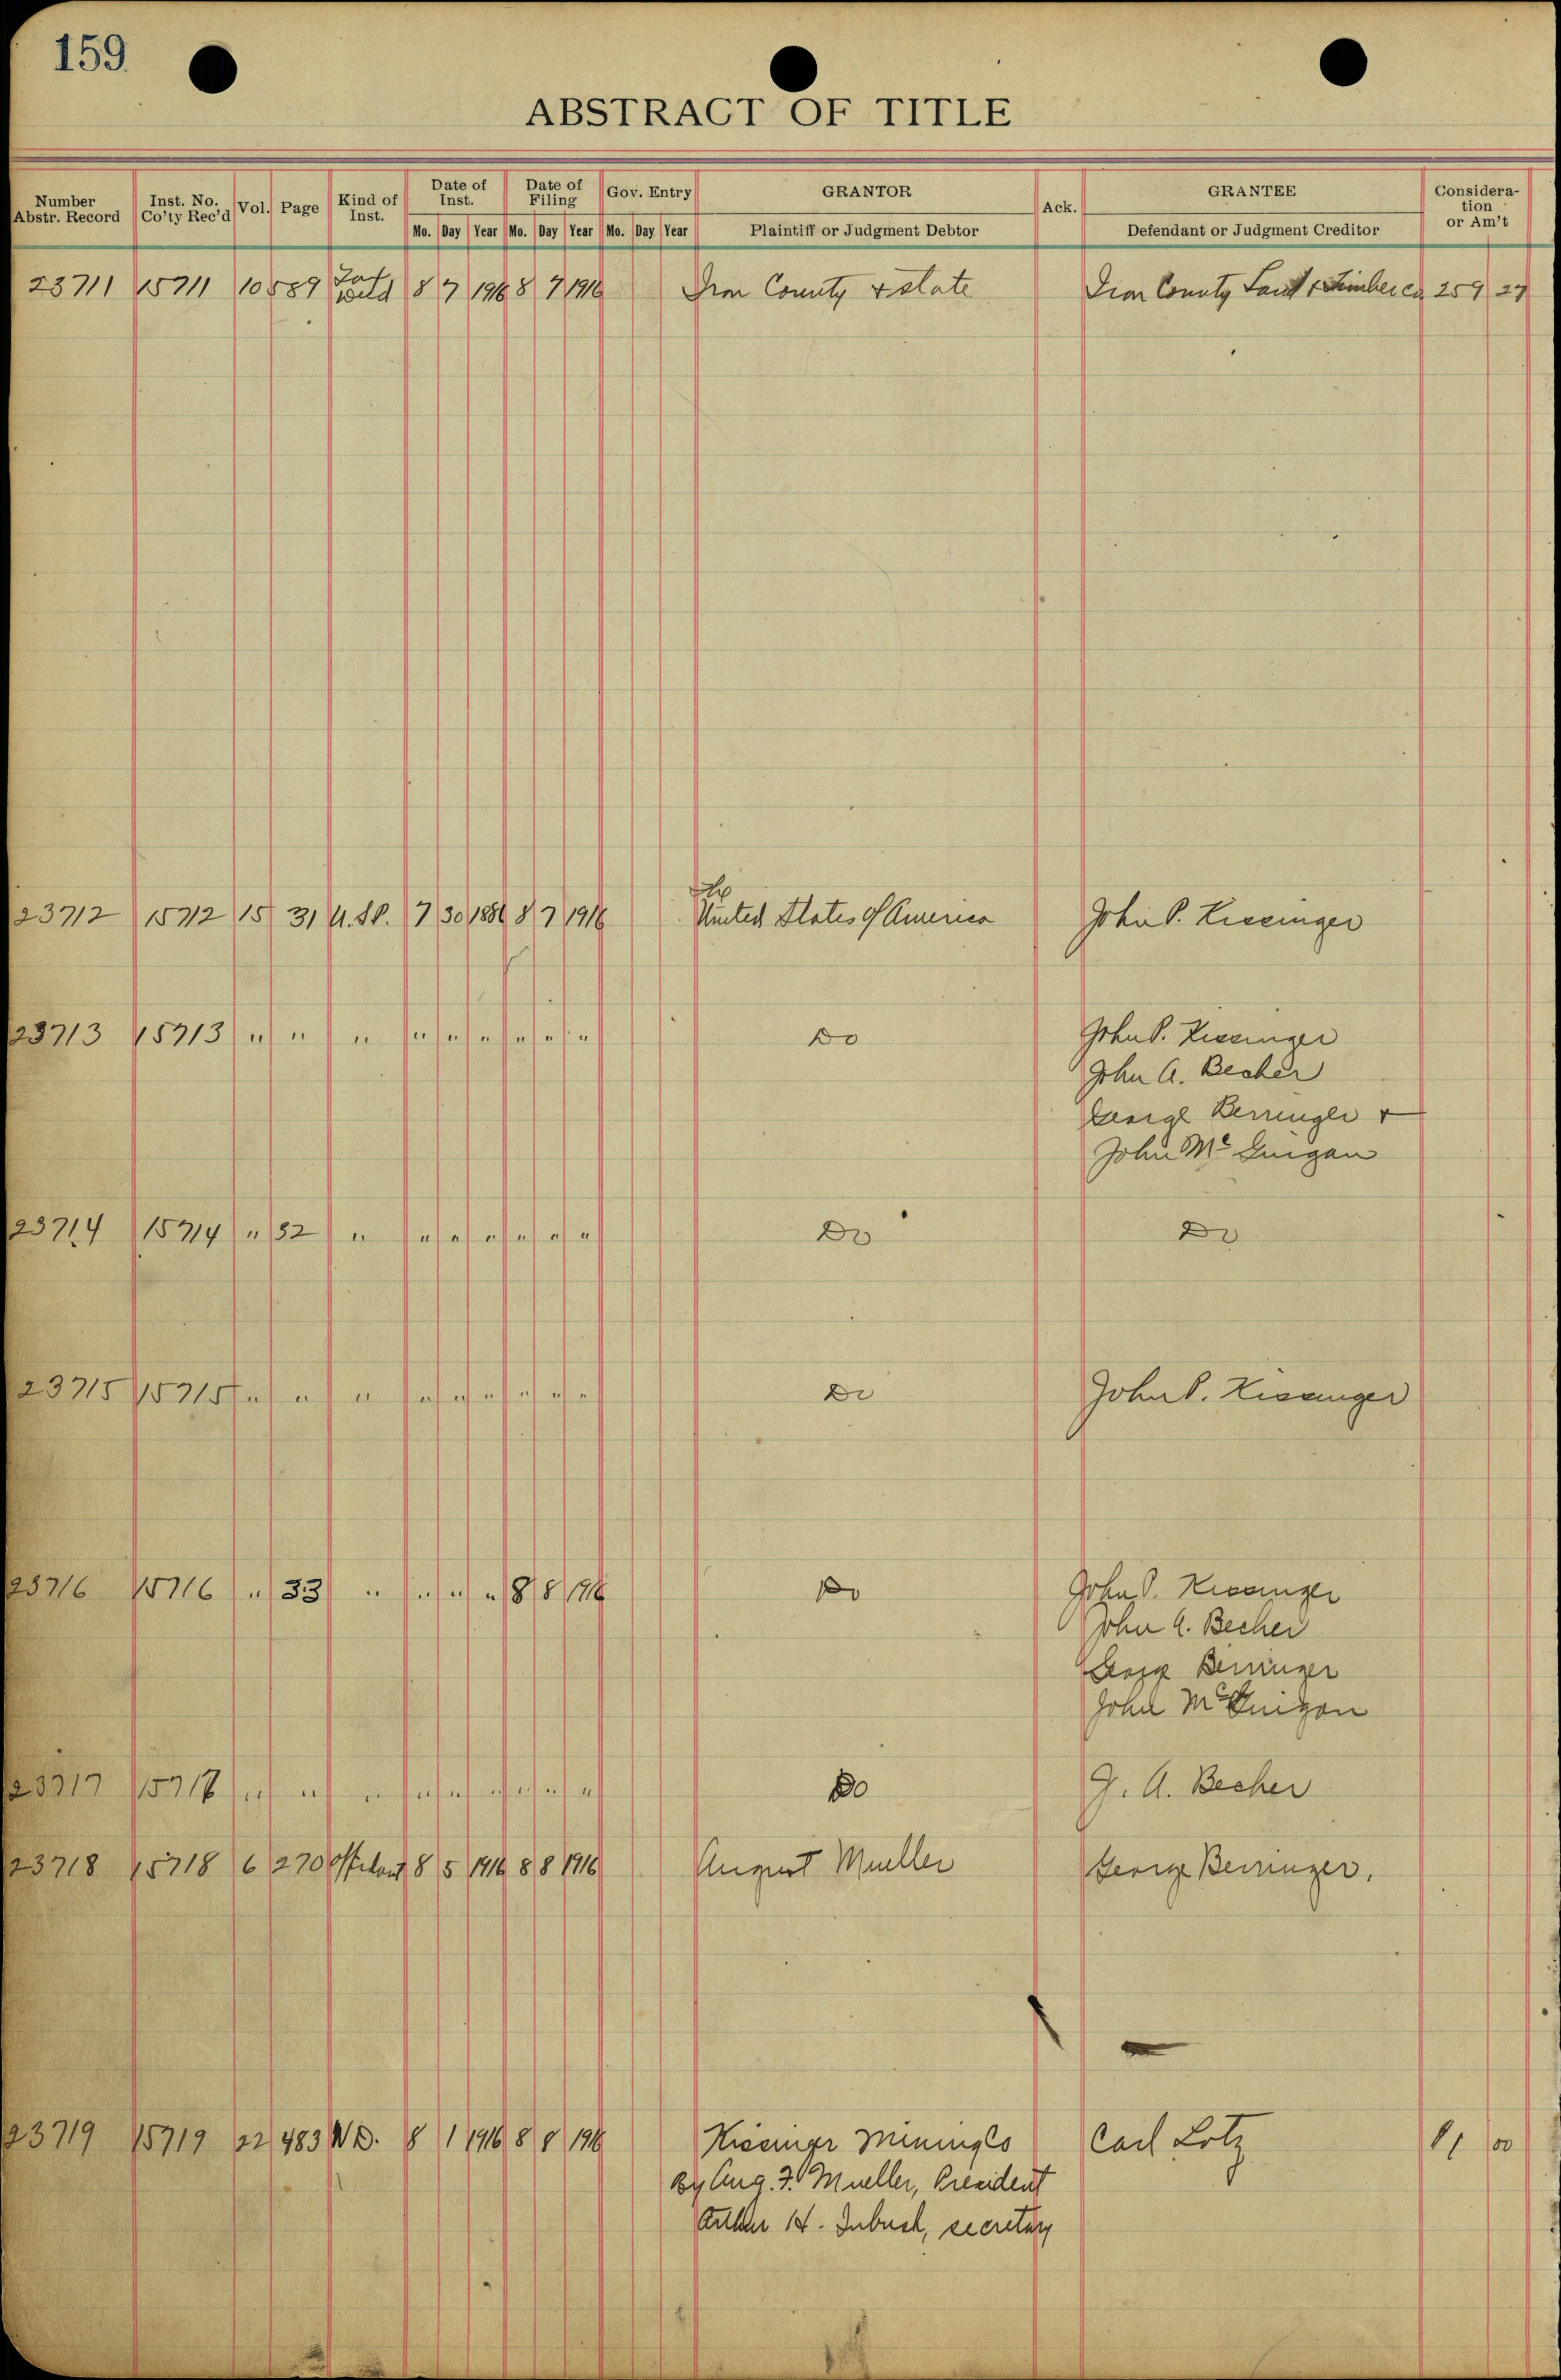 159
ABSTRACT OF TITLE
Number Abstr. Record | Inst. No. Co'ty Rec'd | Vol. | Page | Kind of Inst. | Date of Inst. Mo. Day Year | Date of Filing Mo. Day Year | Gov. Entry Mo. Day Year | GRANTOR Plaintiff or Judgment Debtor | Ack. | GRANTEE Defendant or Judgment Creditor | Consideration or Am't
23711 15711 10 589 8 7 1916 8 7 1916 Iron County & State Iron County Land & Timber Co. 259 27
23712 15712 15 31 U.S.P. 7 30 1886 8 7 1916 The United States of America John P. Kissinger
23713 15713 " " " " " " " " " Do John P. Kissinger
John A. Becher
George Berringer &
John McGuigan
23714 15714 " 32 " " " " " " " Do Do
23715 15715 " " " " " " " " " Do John P. Kissinger
23716 15716 " 33 " " " " 8 8 1916 Do John P. Kissinger
John A. Becher
George Berringer
John McGuigan
23717 15717 " " " " " " " " " Do J. A. Becher
23718 15718 6 270 8 5 1916 8 8 1916 August Mueller George Berringer.
23719 15719 22 483 W.D. 8 1 1916 8 8 1916 Kissinger Mining Co Carl Lotz 1 00
By Aug. F. Mueller, President
Arthur H. Inbush, secretary